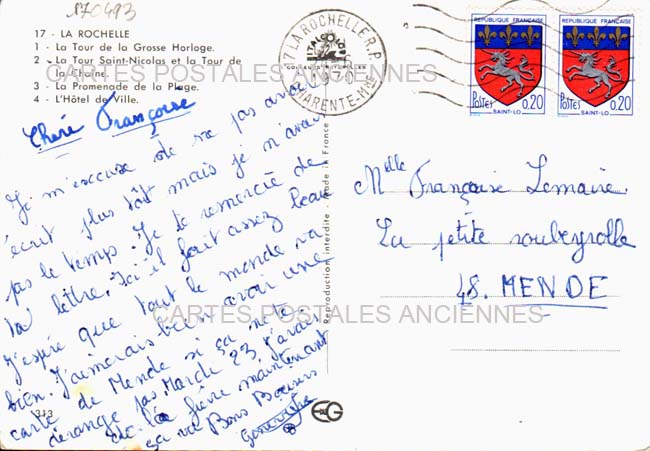 170493
17 - LA ROCHELLE
1 - La Tour de la Grosse Horloge.
2 - La Tour Saint-Nicolas et la Tour de
la Chaîne.
3 - La Promenade de la Plage.
4 - L'Hôtel de Ville.
CARTES POSTALES ANCIENNES
Chère Françoise
Je m'excuse de ne pas avoir
écrit plus tôt mais je n'avais
pas le temps. Je te remercie de
ta lettre. Ici il fait assez beau
J'espère que tout le monde va
bien. J'aimerais bien avoir une
carte de Mende si ça ne te
dérange pas. Mardi 23 j'avais
de la fièvre maintenant
ça va Bons Baisers
Geneviève
313
Reproduction interdite - Made in France
EG
17 LA ROCHELLE R.P.
CHARENTE-Mme
REPUBLIQUE FRANÇAISE
Postes 0,20
SAINT-LO
REPUBLIQUE FRANÇAISE
Postes 0,20
SAINT-LO
Melle Françoise Lemaire.
La petite roubeyrolle
48. MENDE
CARTES POSTALES ANCIENNES